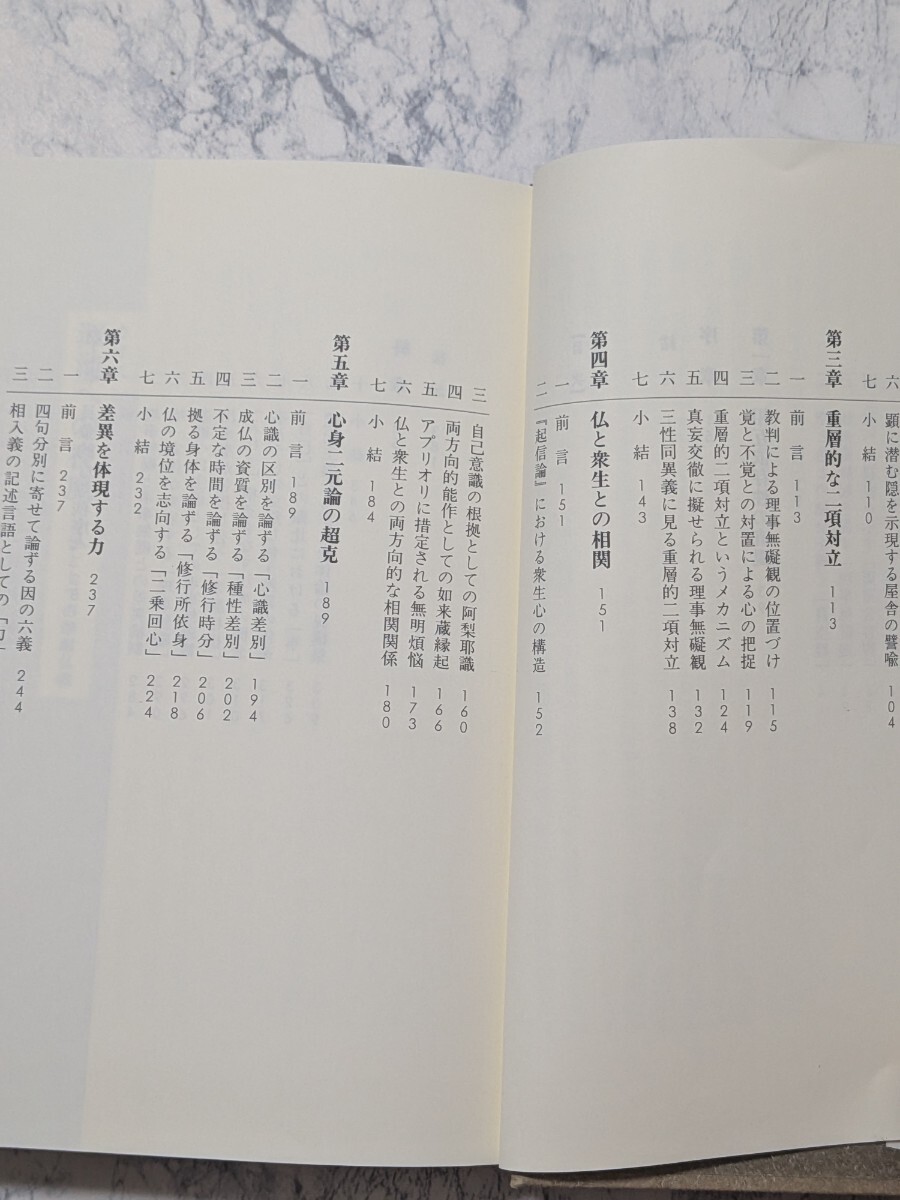 六 顕に潜む隠を示現する屋舎の譬喩 104
七 小結 110
第三章 重層的な二項対立 113
一 前言 113
二 教判による理事無礙観の位置づけ 115
三 覚と不覚との対置による心の把捉 119
四 重層的二項対立というメカニズム 124
五 真妄交徹に擬せられる理事無礙観 132
六 三性同異義に見る重層的二項対立 138
七 小結 143
第四章 仏と衆生との相関 151
一 前言 151
二 『起信論』における衆生心の構造 152
三 自己意識の根拠としての阿梨耶識 160
四 両方向的能作としての如来蔵縁起 166
五 アプリオリに措定される無明煩悩 173
六 仏と衆生との両方向的な相関関係 180
七 小結 184
第五章 心身二元論の超克 189
一 前言 189
二 心識の区別を論ずる「心識差別」 194
三 成仏の資質を論ずる「種性差別」 202
四 不定な時間を論ずる「修行時分」 206
五 拠る身体を論ずる「修行所依身」 218
六 仏の境位を志向する「二乗回心」 224
七 小結 232
第六章 差異を体現する力 237
一 前言 237
二 四句分別に寄せて論ずる因の六義 244
三 相入義の記述言語としての「力」